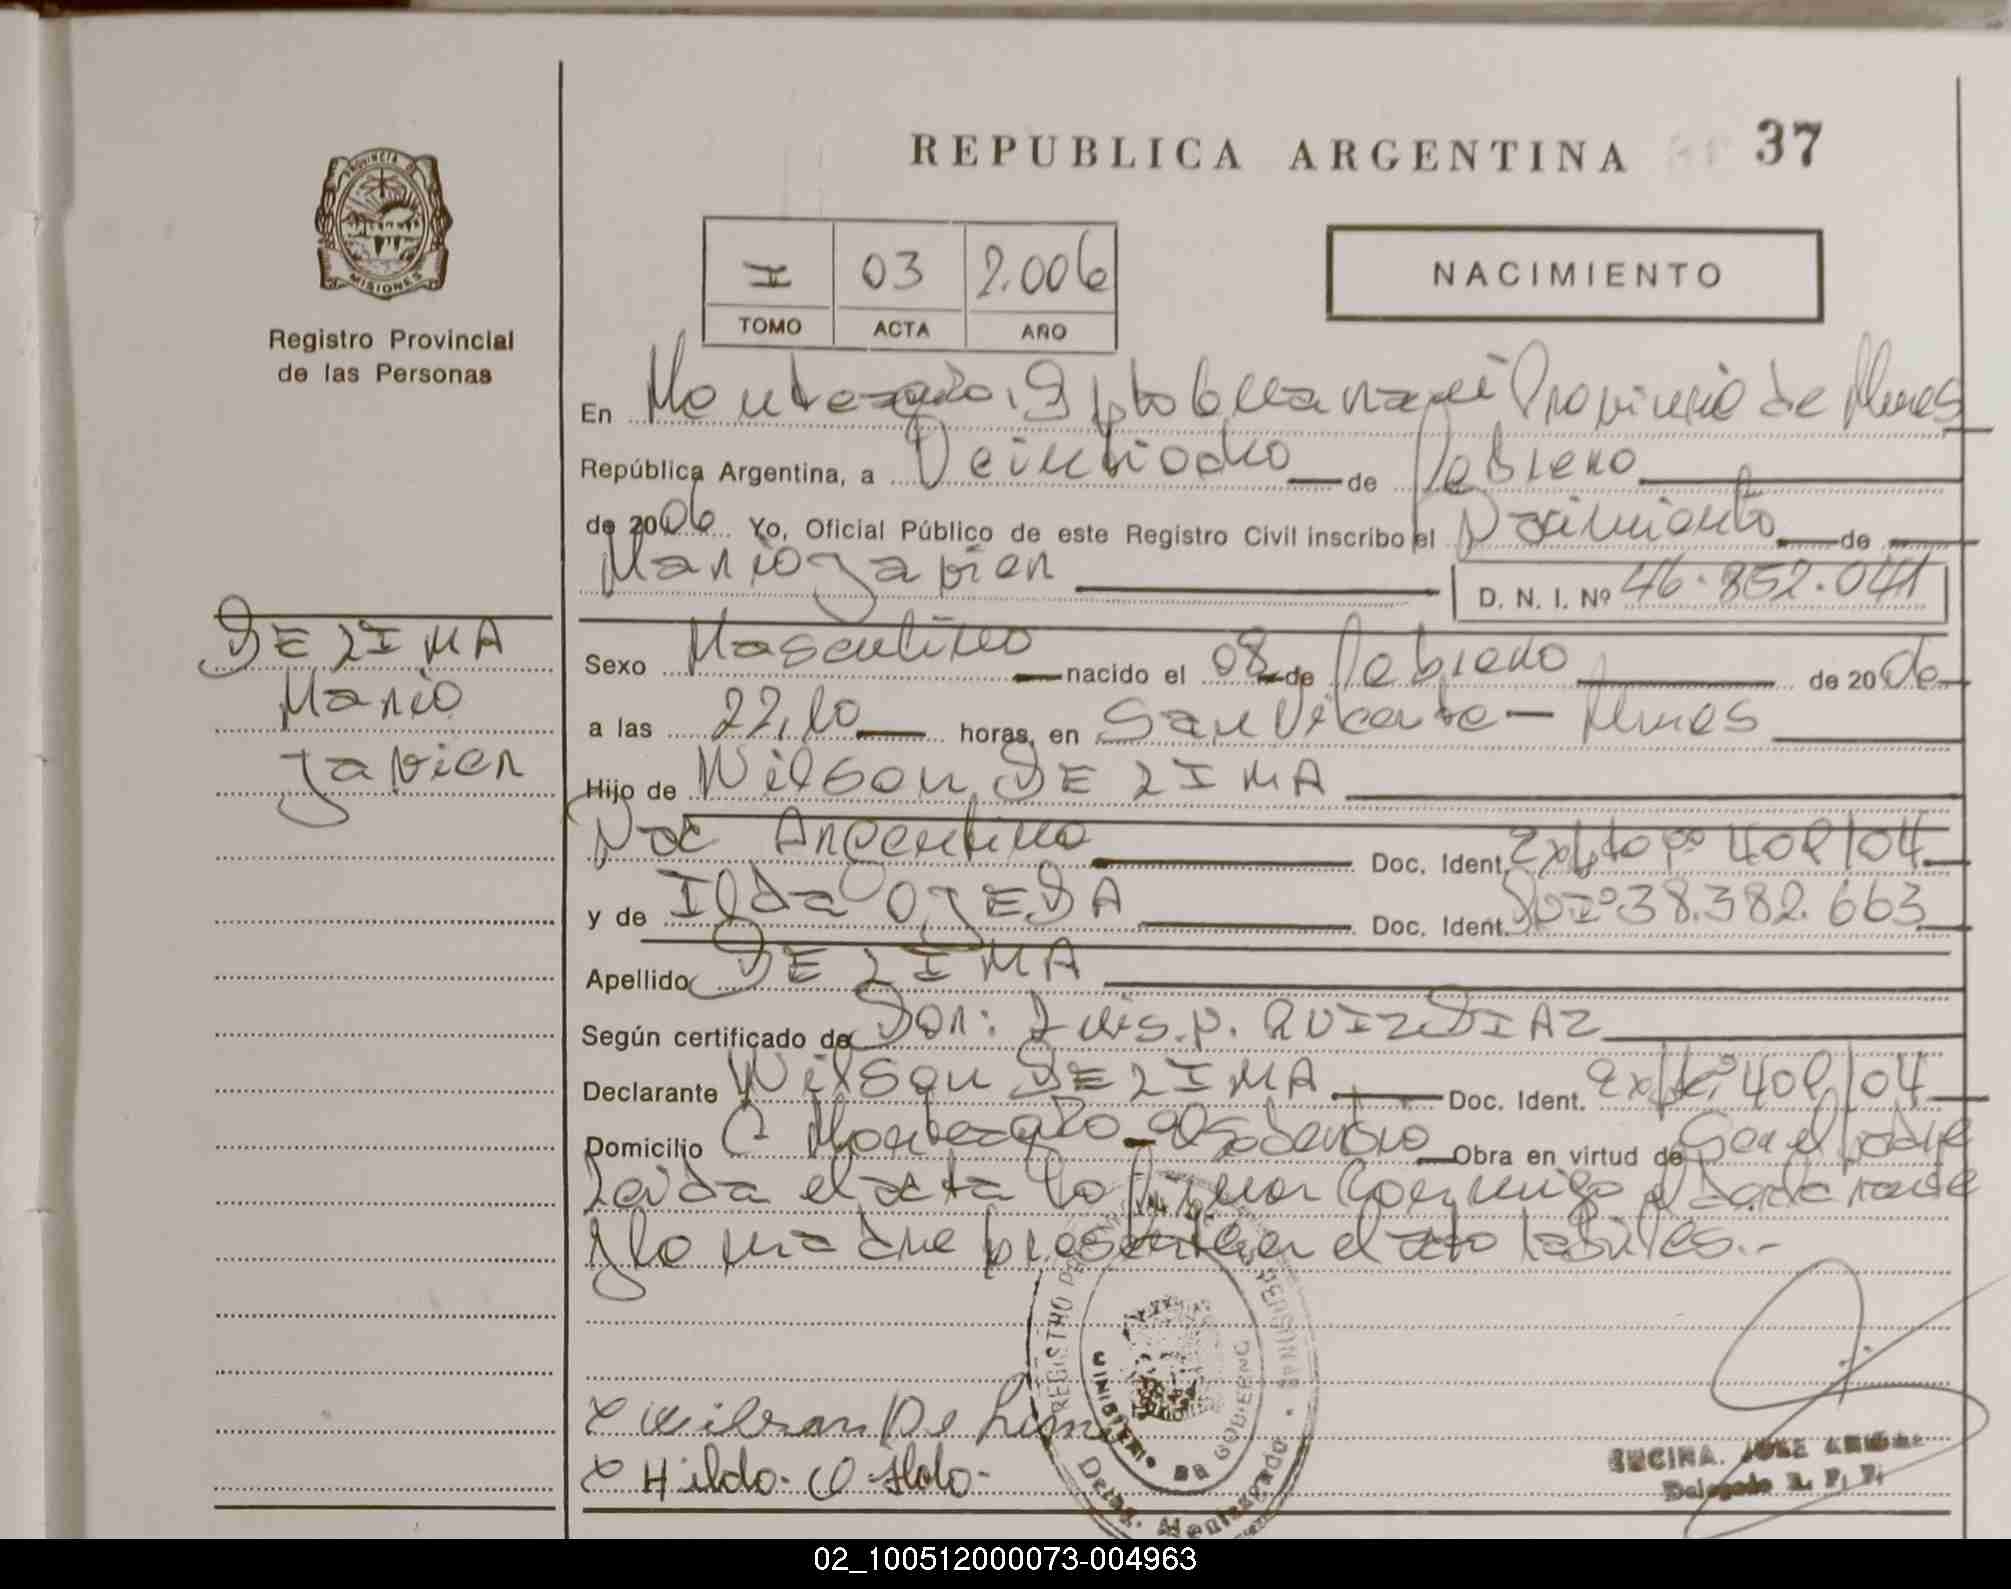 REPUBLICA ARGENTINA 37
PROVINCIA DE
MISIONES
Registro Provincial
de las Personas
I 03 2.006
TOMO ACTA AÑO
NACIMIENTO
En Monteagdo, Dpto Guaranaí Provincia de Mnes
República Argentina, a Veintiocho de Febrero
de 2006 Yo, Oficial Público de este Registro Civil inscribo el Nacimiento de
Mario Javier D. N. I. Nº 46.852.041
DE LIMA
Mario
Javier
Sexo Masculino nacido el 08 de Febrero de 20
a las 22,10 horas, en San Vicente - Mnes
Hijo de Wilson DE LIMA
Nac Argentino Doc. Ident. 401/04
y de Ilda OJEDA Doc. Ident. DNIº 38.382.663
Apellido DE LIMA
Según certificado de Dor: Luis.P. RUIZ DIAZ
Declarante Wilson DE LIMA Doc. Ident. 401/04
Domicilio C Monteagdo Obra en virtud de Ser el padre
Leida el acta la firman Conmigo el Declarante
y la madre presente en el acto
x Wilson De Lima
x Hilda
REGISTRO PROVINCIAL DE LAS PERSONAS
MINISTERIO DE GOBIERNO
Deleg. Monteagudo
ENCINA. JOSE
Delegado R. P. P.
02_100512000073-004963